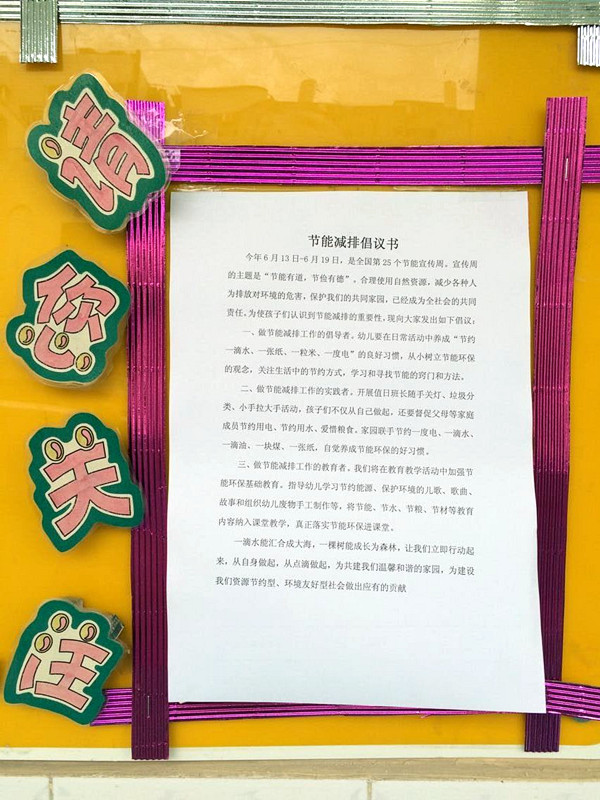 请
您
关
注
节能减排倡议书
今年6月13日-6月19日，是全国第25个节能宣传周。宣传周
的主题是“节能有道，节俭有德”。合理使用自然资源，减少各种人
为排放对环境的危害，保护我们的共同家园，已经成为全社会的共同
责任。为使孩子们认识到节能减排的重要性，现向大家发出如下倡议：
一、做节能减排工作的倡导者。幼儿要在日常活动中养成“节约
一滴水、一张纸、一粒米、一度电”的良好习惯，从小树立节能环保
的观念，关注生活中的节约方式，学习和寻找节能的窍门和方法。
二、做节能减排工作的实践者。开展值日班长随手关灯、垃圾分
类、小手拉大手活动，孩子们不仅从自己做起，还要督促父母等家庭
成员节约用电、节约用水、爱惜粮食。家园联手节约一度电、一滴水、
一滴油、一块煤、一张纸，自觉养成节能环保的好习惯。
三、做节能减排工作的教育者。我们将在教育教学活动中加强节
能环保基础教育。指导幼儿学习节约能源、保护环境的儿歌、歌曲、
故事和组织幼儿废物手工制作等，将节能、节水、节粮、节材等教育
内容纳入课堂教学，真正落实节能环保进课堂。
一滴水能汇合成大海，一棵树能成长为森林，让我们立即行动起
来，从自身做起，从点滴做起，为共建我们温馨和谐的家园，为建设
我们资源节约型、环境友好型社会做出应有的贡献